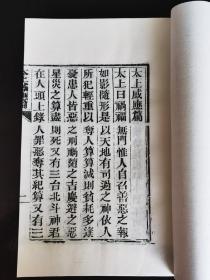 太上感應篇
太上曰禍福無門惟人自召善惡之報
如影隨形是以天地有司過之神依人
所犯輕重以奪人算算減則貧耗多逢
憂患人皆惡之刑禍隨之吉慶避之惡
星災之算盡則死又有三台北斗神君
在人頭上錄人罪惡奪其紀算又有三